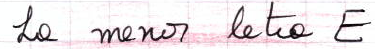 La menor letra E